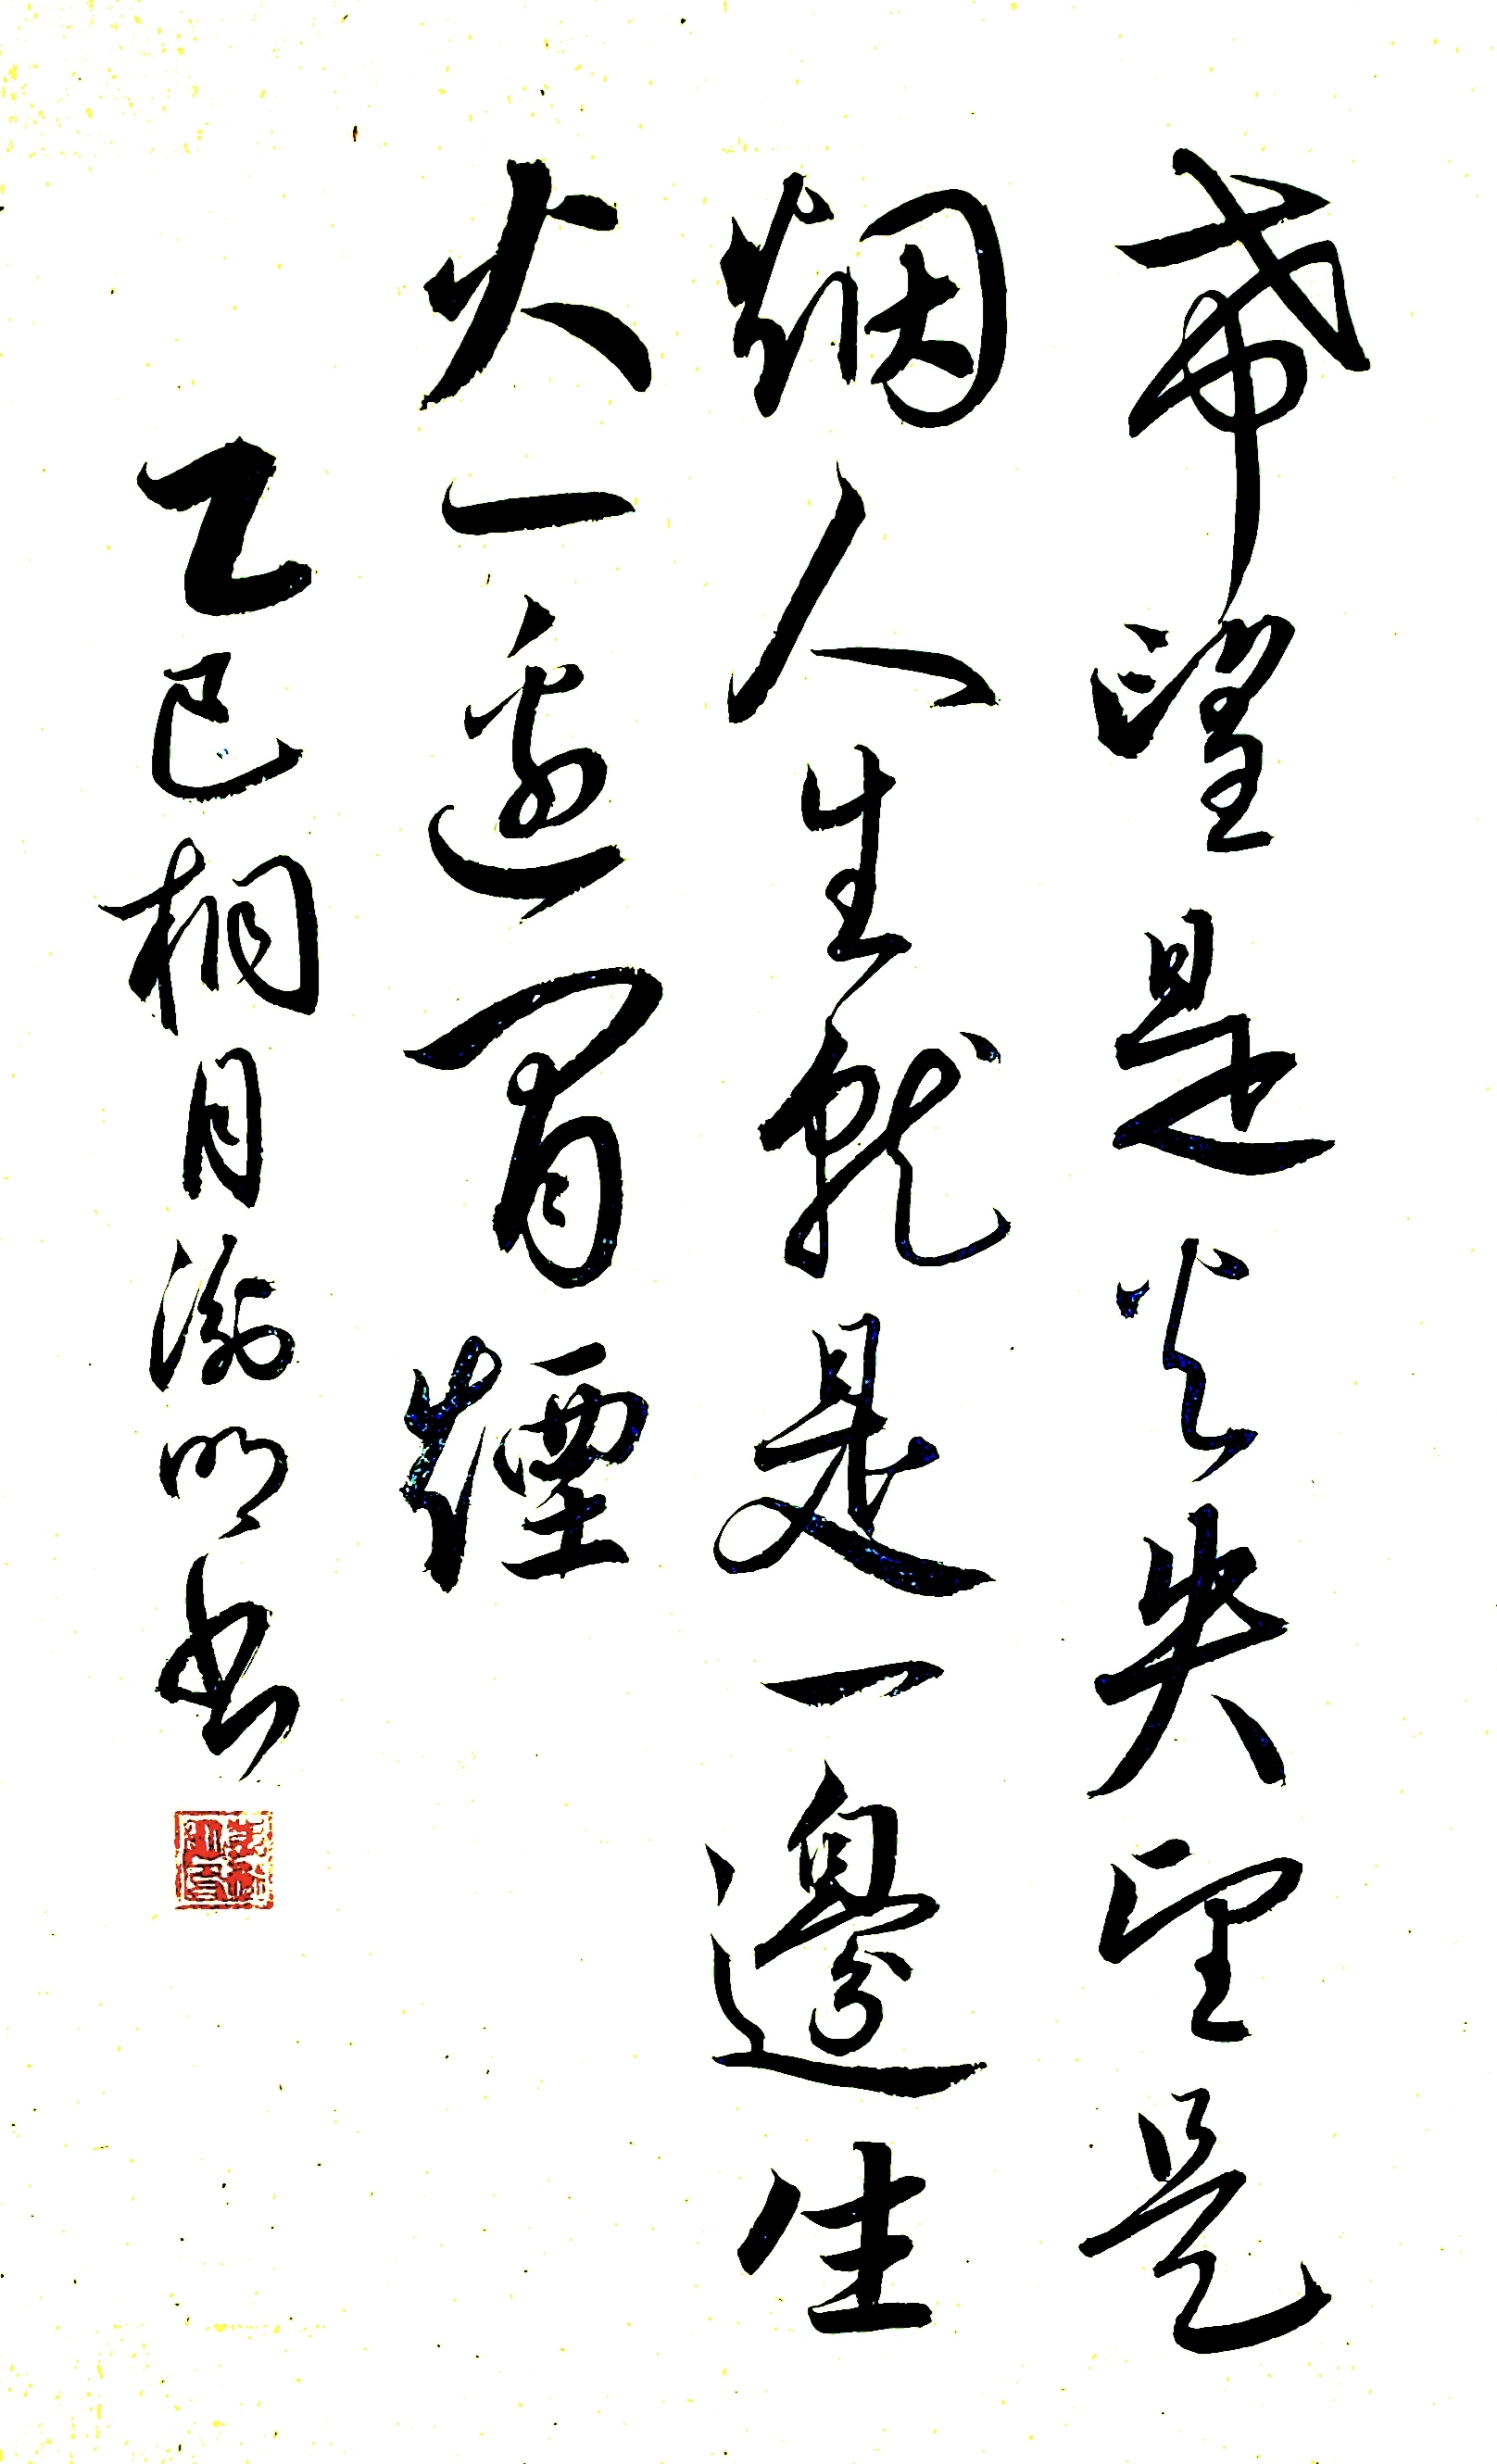 希望是火失望是
烟人生就是一邊生
火一邊冒煙
乙巳桐月
明书